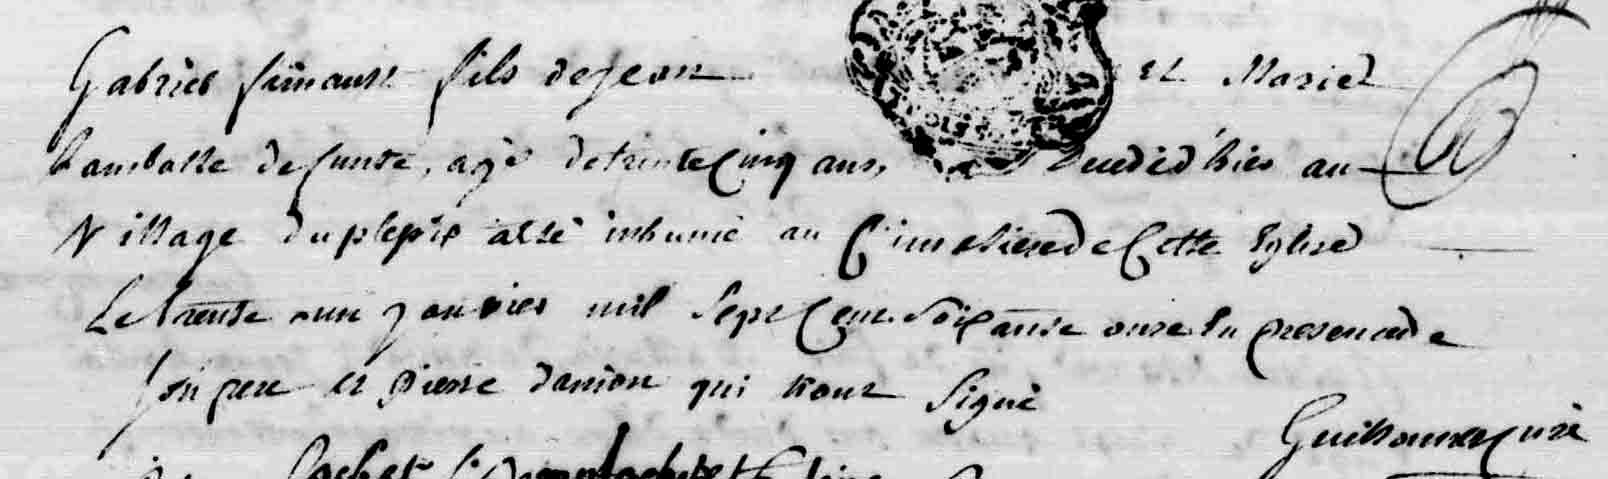 Gabriel fils de jean et Marie
lambatte defunte, agé de trente Cinq ans, decedé d'hier au
Village du plepis a été inhumé au Cimetiere de Cette Eglise
Le trente un janvier mil sept Cent Soixante onze En presence de
son pere et pierre danion qui n'ont signé
Guillomer curé